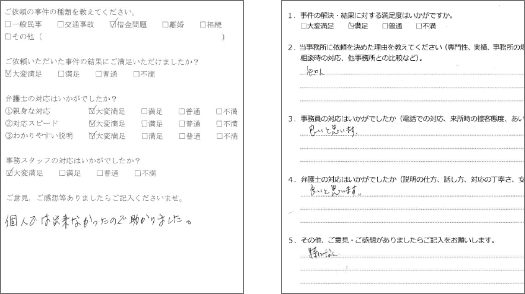 ご依頼の事件の種類を教えてください。
□一般民事 □交通事故 ☑借金問題 □離婚 □相続
□その他（ ）
ご依頼いただいた事件の結果にご満足いただけましたか？
☑大変満足 □満足 □普通 □不満
弁護士の対応はいかがでしたか？
①親身な対応 ☑大変満足 □満足 □普通 □不満
②対応スピード ☑大変満足 □満足 □普通 □不満
③わかりやすい説明 ☑大変満足 □満足 □普通 □不満
事務スタッフの対応はいかがでしたか？
☑大変満足 □満足 □普通 □不満
ご意見、ご感想等ありましたらご記入くださいませ。
個人では出来なかったので助かりました。
1．事件の解決・結果に対する満足度はいかがですか。
□大変満足 ☑満足 □普通 □不満
2．当事務所に依頼を決めた理由を教えてください（専門性、実績、事務所の
相談時の対応、他事務所との比較など）。
3．事務員の対応はいかがでしたか（電話での対応、来所時の接客態度、あい
良いと思います。
4．弁護士の対応はいかがでしたか（説明の仕方、話し方、対応の丁寧さ、安
良いと思います。
5．その他、ご意見・ご感想がありましたらご記入をお願いします。
特になし